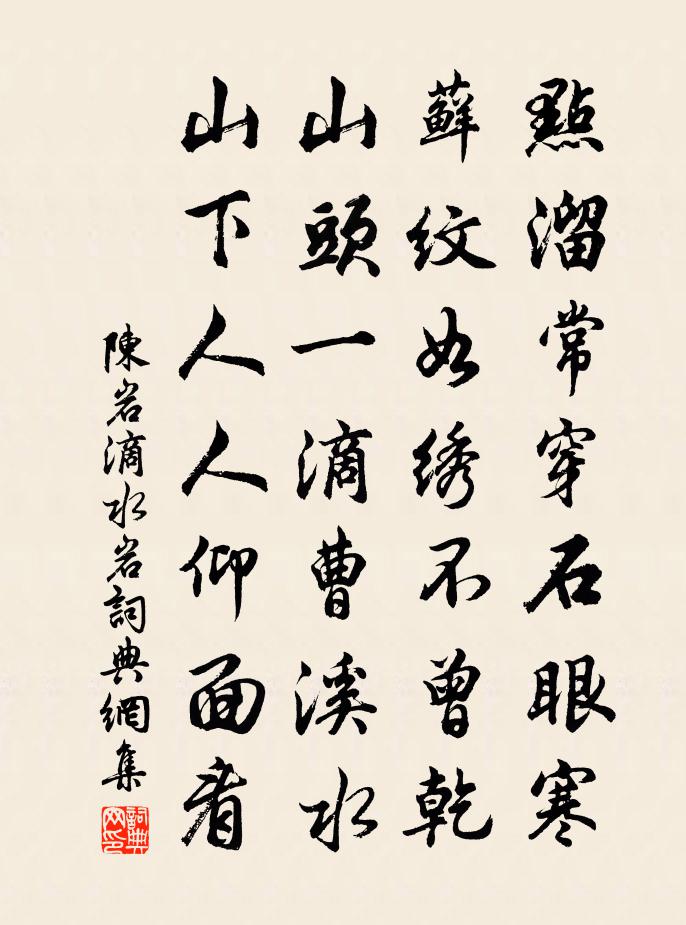 點溜常穿石眼寒
蘚紋如绣不曾乾
山頭一滴曹溪水
山下人人仰面看
陳岩滴水岩詞典網集
詞典网印